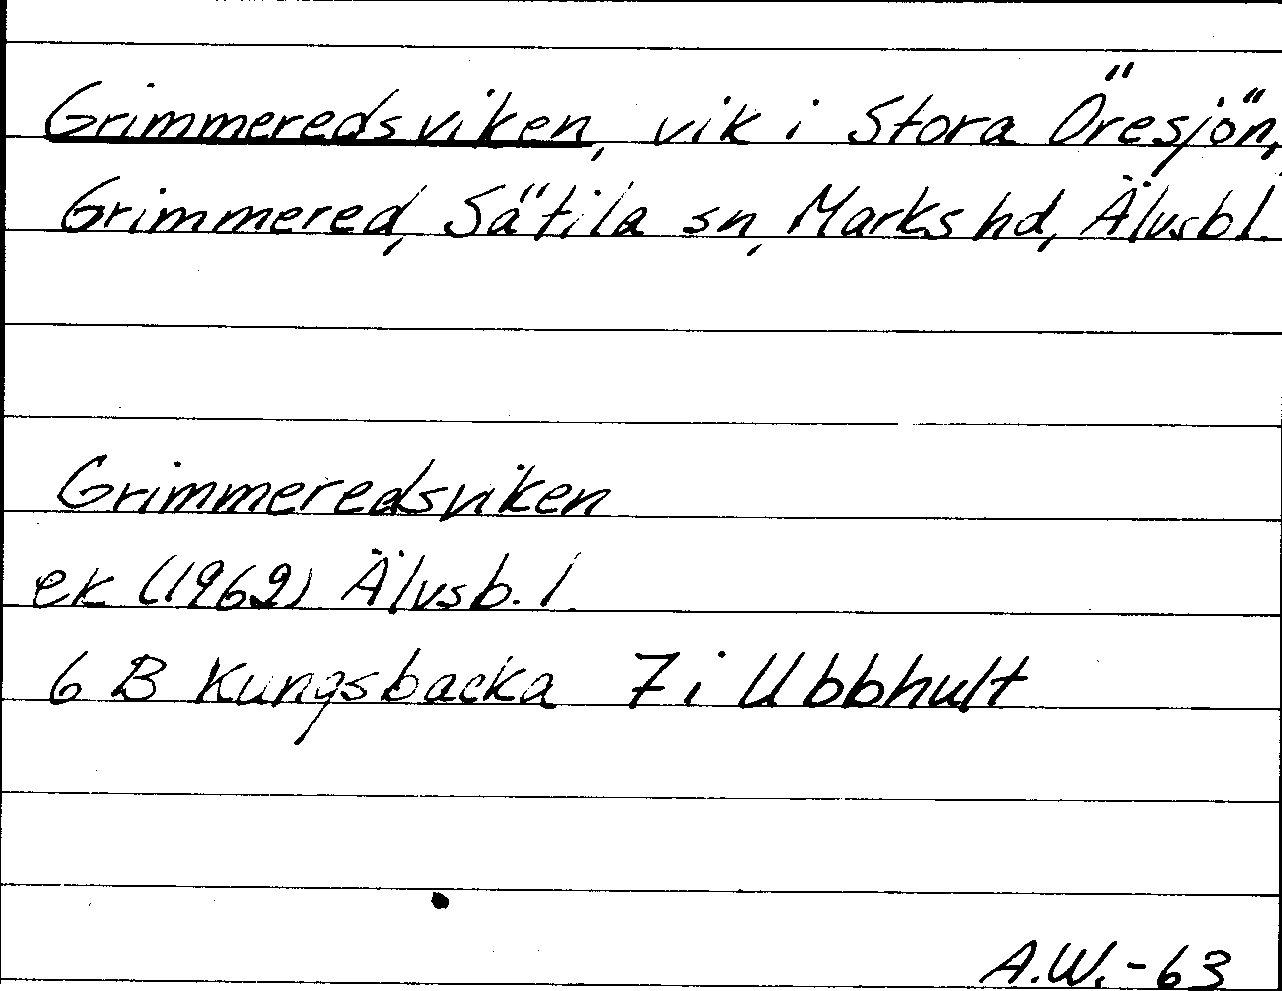 Grimmeredsviken, vik i Stora Öresjön,
Grimmered, Sätila sn, Marks hd, Älvsbl.
Grimmeredsviken
ek (1962) Älvsb. l.
6 B Kungsbacka 7 i Ubbhult
A.W.-63